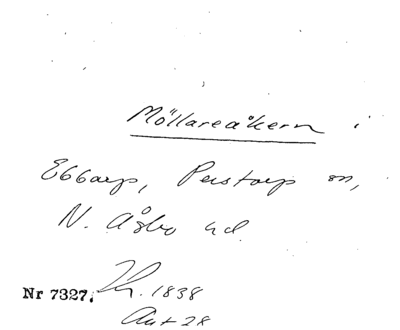 Möllareåkern i
Ebbarp, Perstorp sn,
N. Åsbo hd.
Nr 7327. 1838
Ant 28